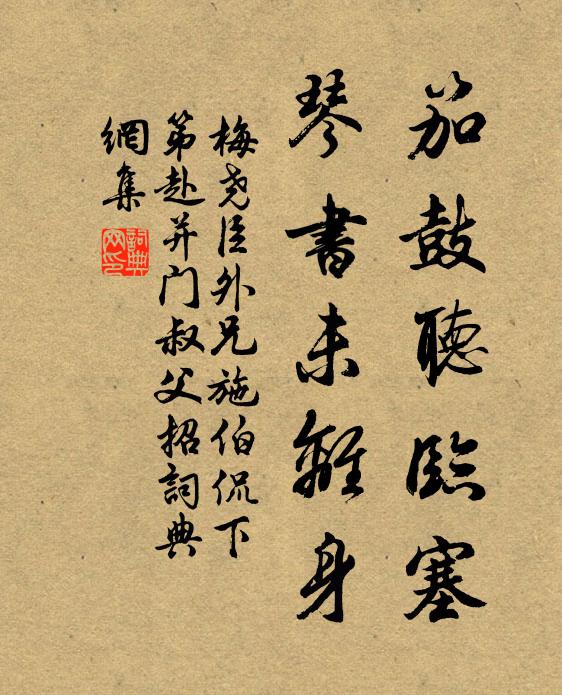 笳鼓聽臨塞
琴書未離身
梅尧臣外兄施伯侃下
第赴并门叔父招詞典
網集
詞典網印